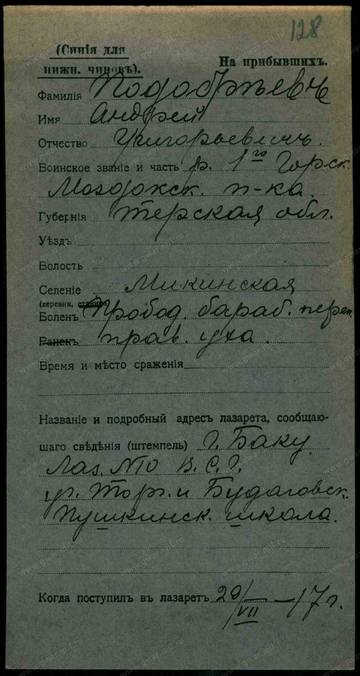 128
(Синія для
нижн. чиновъ).
На прибывшихъ.
Фамилія Подобрѣевъ
Имя Андрей
Отчество Григорьевичъ.
Воинское званіе и часть р. 1го Горск.
Моздокск. п-ка.
Губернія Терская обл.
Уѣздъ
Волость
Селеніе Микинская
(деревня, станица)
Боленъ Пробод. бараб. переп
Раненъ прав. уха.
Время и мѣсто сраженія
Названіе и подробный адресъ лазарета, сообщаю-
щаго свѣдѣнія (штемпель) г. Баку
Лаз. №10 В.С.Г.
уг. Торг. и Будаговск.
Пушкинск. школа.
Когда поступилъ въ лазаретъ 20/VII-17 г.